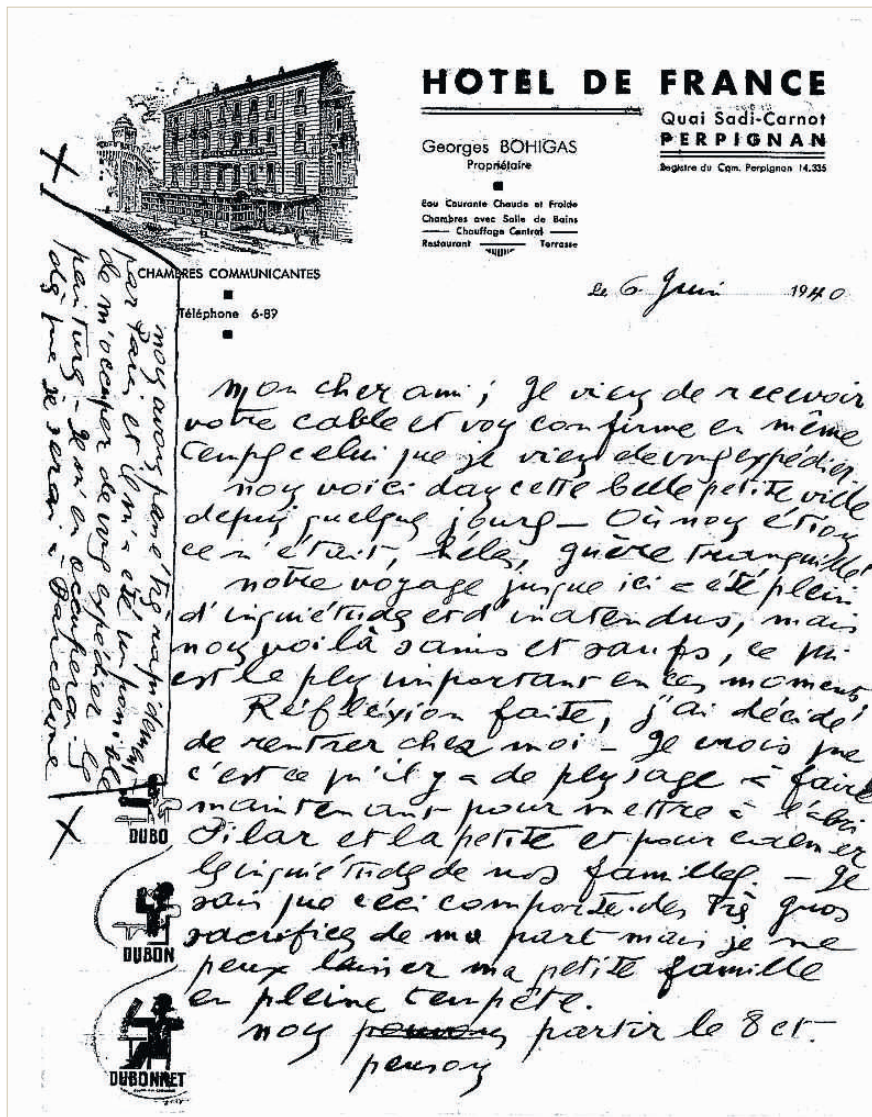 HOTEL DE FRANCE
Quai Sadi-Carnot
PERPIGNAN
Registre du Com. Perpignan 14.335
Georges BOHIGAS
Propriétaire
Eau Courante Chaude et Froide
Chambres avec Salle de Bains
Chauffage Central
Restaurant Terrasse
CHAMBRES COMMUNICANTES
Téléphone 6-89
le 6 Juin 1940
Mon cher ami; Je viens de recevoir
votre cable et vous confirme en même
temps celui que je viens de vous expédier.
Nous voici dans cette belle petite ville
depuis quelques jours – Où nous étions
ce n'était, hélas, guère tranquille
Notre voyage jusque ici a été plein
d'inquiétudes et d'inatendus, mais
nous voilà sains et saufs, ce qui
est le plus important en ces moments
Réfléxion faite, j'ai décidé
de rentrer chez moi – Je crois que
c'est ce qu'il y a de plus sage à faire
maintenant pour mettre à l'abri
Pilar et la petite et pour calmer
les inquiétudes de nos familles. – Je
sais que ceci comporte des très gros
sacrifices de ma part mais je ne
peux laisser ma petite famille
en pleine tempête.
Nous pouvons partir le 8 et
pensons
+
nous avons passé très rapidement
par Paris et il m'a été impossible
de m'occuper de vous expédier les
peintures – Je m'en occuperai
dès que je serai à Barcelone
X
DUBO
DUBON
DUBONNET